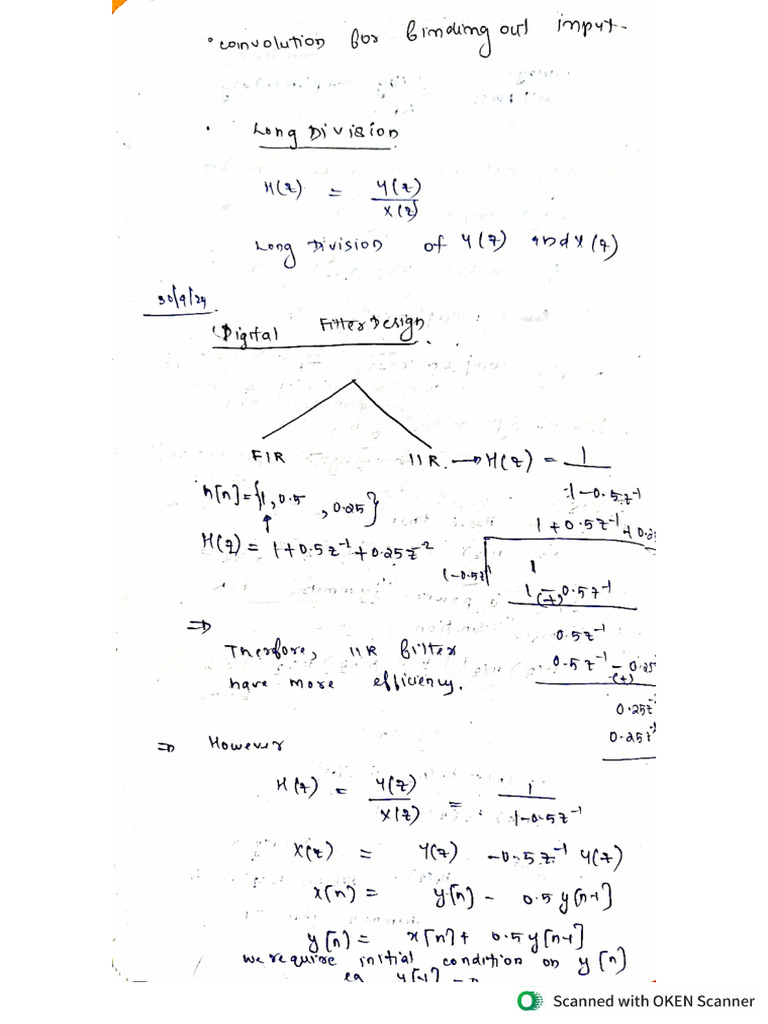 • convolution for finding out input.
• Long Division
H(z) = Y(z)/X(z)
Long Division of Y(z) and X(z)
30/9/24
Digital Filter Design.
FIR
IIR → H(z) = 1/(1-0.5z⁻¹)
h[n]={1, 0.5, 0.25}
↑
H(z) = 1+0.5z⁻¹+0.25z⁻²
1+0.5z⁻¹+0.25
1-0.5z⁻¹
1
1 - 0.5z⁻¹
(+)
0.5z⁻¹
0.5z⁻¹ - 0.25
(+)
0.25z⁻
0.25z⁻
⇒ Therefore, IIR filter
have more efficiency.
⇒ However
H(z) = Y(z)/X(z) = 1/(1-0.5z⁻¹)
X(z) = Y(z) -0.5z⁻¹ Y(z)
x[n] = y[n] - 0.5y[n-1]
y[n] = x[n]+ 0.5y[n-1]
we require initial condition on y[n]
Scanned with OKEN Scanner